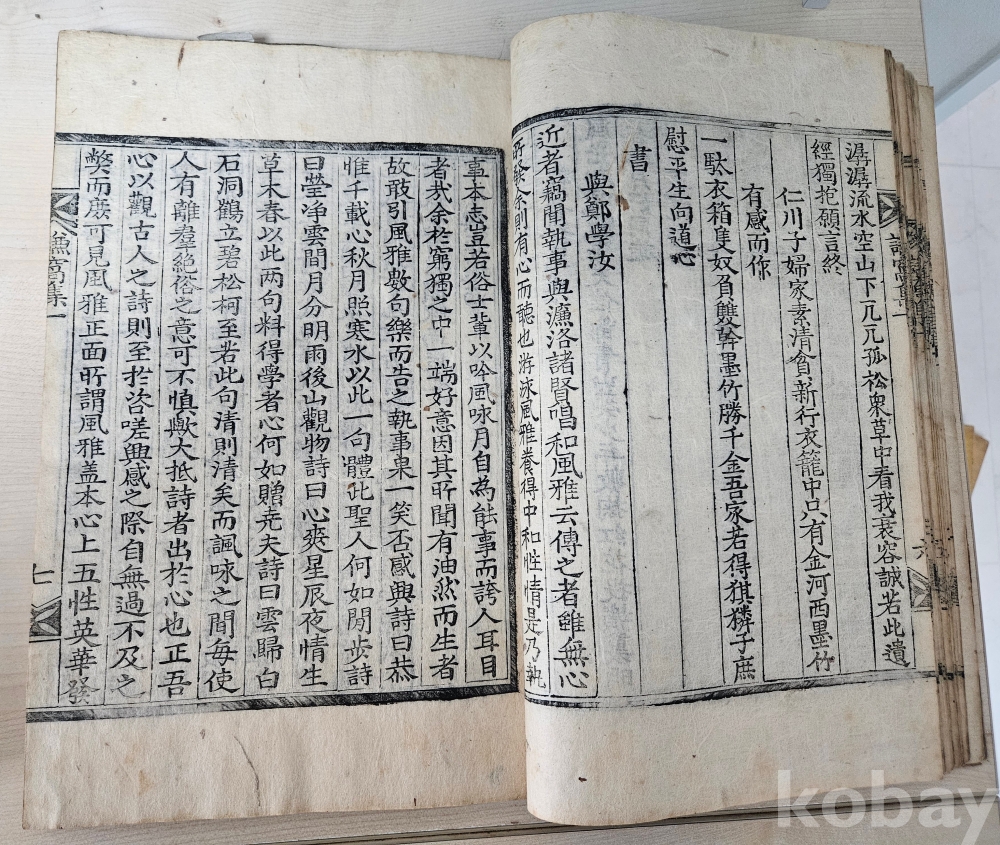 潺潺流水空山下几几孤松衆草中看我衰容誠若此遺
經獨抱願言終
仁川子婦家素清貧新行衣籠中只有金河西墨竹
有感而作
一駄衣箱隻奴負雙幹墨竹勝千金吾家若得猉獜子庶
慰平生向道心
書
與鄭學汝
近者竊聞執事與濂洛諸賢唱和風雅云傳之者雖無心
所發余則有心而聽也游泳風雅養得中和性情是乃執
六
事本志豈若俗士輩以吟風咏月自為能事而誇人耳目
者哉余於窮獨之中一端好意因其所聞有油然而生者
故敢引風雅數句樂而告之執事果一笑否感興詩曰恭
惟千載心秋月照寒水以此一句體此聖人何如閒步詩
曰瑩净雲間月分明雨後山觀物詩曰心爽星辰夜情生
草木春以此兩句料得學者心何如贈尭夫詩曰雲歸白
石洞鶴立碧松柯至若此句清則清矣而諷咏之間每使
人有離羣絶俗之意可不慎歟大抵詩者出於心也正吾
心以觀古人之詩則至扵咨嗟興感之際自無過不及之
獘而庻可見風雅正面所謂風雅盖本心上五性英華發
漁窩集一
七
kobay